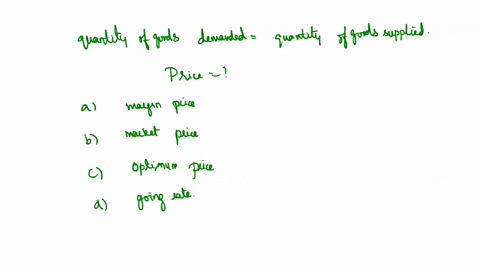 quantity of goods demanded = quantity of goods supplied.
Price = ?
a) margin price
b) market price
c) optimum price
d) going rate.